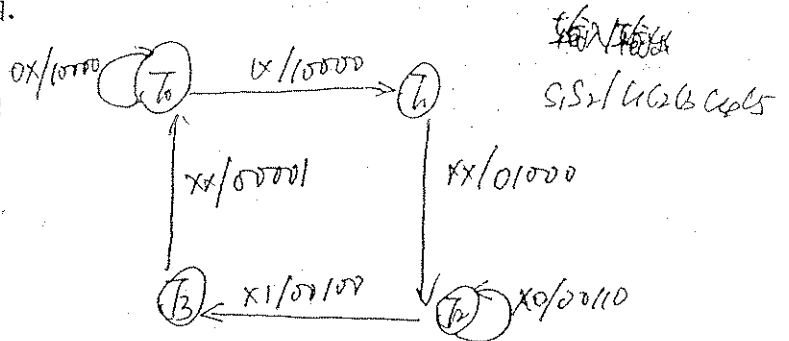 1.
0X/10000
T0
1X/10000
T1
S1S2/C1C2C3C4C5
XX/00001
XX/01000
T3
X1/00100
T2
X0/00110